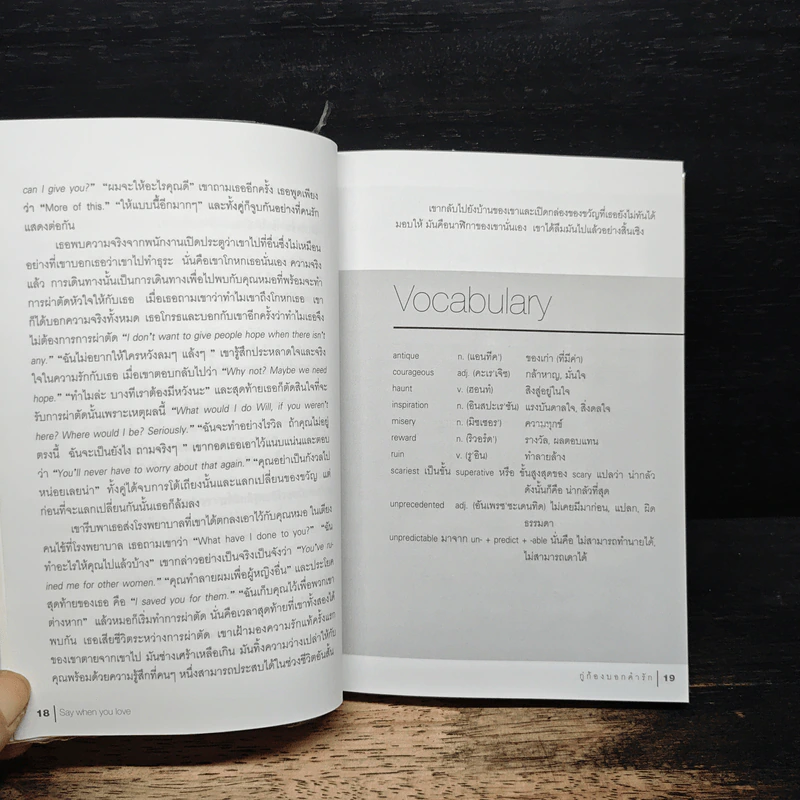 can I give you?" "ผมจะให้อะไรคุณดี" เขาถามเธออีกครั้ง เธอพูดเพียง
ว่า "More of this." "ให้แบบนี้อีกมากๆ" และทั้งคู่ก็จูบกันอย่างที่คนรัก
แสดงต่อกัน
เธอพบความจริงจากพนักงานเปิดประตูว่าเขาไปที่อื่นซึ่งไม่เหมือน
อย่างที่เขาบอกเธอว่าเขาไปทำธุระ นั่นคือเขาโกหกเธอนั่นเอง ความจริง
แล้ว การเดินทางนั้นเป็นการเดินทางเพื่อไปพบกับคุณหมอที่พร้อมจะทำ
การผ่าตัดหัวใจให้กับเธอ เมื่อเธอถามเขาว่าทำไมเขาถึงโกหกเธอ เขา
ก็ได้บอกความจริงทั้งหมด เธอโกรธและบอกกับเขาอีกครั้งว่าทำไมเธอถึง
ไม่ต้องการการผ่าตัด "I don't want to give people hope when there isn't
any." "ฉันไม่อยากให้ใครหวังลมๆ แล้งๆ " เขารู้สึกประหลาดใจและจริง
ใจในความรักกับเธอ เมื่อเขาตอบกลับไปว่า "Why not? Maybe we need
hope." "ทำไมล่ะ บางทีเราต้องมีหวังนะ" และสุดท้ายเธอก็ตัดสินใจที่จะ
รับการผ่าตัดนั้นเพราะเหตุผลนี้ "What would I do Will, if you weren't
here? Where would I be? Seriously." "ฉันจะทำอย่างไรวิล ถ้าคุณไม่อยู่
ตรงนี้ ฉันจะเป็นยังไง ถามจริงๆ " เขากอดเธอเอาไว้แนบแน่นและตอบ
ว่า "You'll never have to worry about that again." "คุณอย่าเป็นกังวลไป
หน่อยเลยน่า" ทั้งคู่ได้จบการโต้เถียงนั้นและแลกเปลี่ยนของขวัญ แต่
ก่อนที่จะแลกเปลี่ยนกันนั้นเธอก็ล้มลง
เขารีบพาเธอส่งโรงพยาบาลที่เขาได้ตกลงเอาไว้กับคุณหมอ ในเตียง
คนไข้ที่โรงพยาบาล เธอถามเขาว่า "What have I done to you?" "ฉัน
ทำอะไรให้คุณไปแล้วบ้าง" เขากล่าวอย่างเป็นจริงเป็นจังว่า "You've ru-
ined me for other women." "คุณทำลายผมเพื่อผู้หญิงอื่น" และประโยค
สุดท้ายของเธอ คือ "I saved you for them." "ฉันเก็บคุณไว้เพื่อพวกเขา
ต่างหาก" แล้วหมอก็เริ่มทำการผ่าตัด นั่นคือเวลาสุดท้ายที่เขาทั้งสองได้
พบกัน เธอเสียชีวิตระหว่างการผ่าตัด เขาเฝ้ามองความรักแท้ครั้งแรก
ของเขาตายจากเขาไป มันช่างเศร้าเหลือเกิน มันทิ้งความว่างเปล่าให้กับ
คุณพร้อมด้วยความรู้สึกที่คนๆ หนึ่งสามารถประสบได้ในช่วงชีวิตอันสั้น
18 Say when you love
เขากลับไปยังบ้านของเขาและเปิดกล่องของขวัญที่เธอยังไม่ทันได้
มอบให้ มันคือนาฬิกาของเขานั่นเอง เขาได้ลืมมันไปแล้วอย่างสิ้นเชิง
Vocabulary
antique n. (แอนทีค') ของเก่า (ที่มีค่า)
courageous adj. (คะเรเจิซ) กล้าหาญ, มั่นใจ
haunt v. (ฮอนท์) สิงสู่อยู่ในใจ
inspiration n. (อินสปะเร'ชัน) แรงบันดาลใจ, สิ่งดลใจ
misery n. (มิซเซอร') ความทุกข์
reward n. (รีวอร์ด') รางวัล, ผลตอบแทน
ruin v. (รู'อิน) ทำลายล้าง
scariest เป็นขั้น superative หรือ ขั้นสูงสุดของ scary แปลว่า น่ากลัว
ดังนั้นก็คือ น่ากลัวที่สุด
unprecedented adj. (อันเพรซ'ซะเดนทิด) ไม่เคยมีมาก่อน, แปลก, ผิด
ธรรมดา
unpredictable มาจาก un- + predict + -able นั่นคือ ไม่สามารถทำนายได้,
ไม่สามารถเดาได้
กู่ก้องบอกคำรัก 19